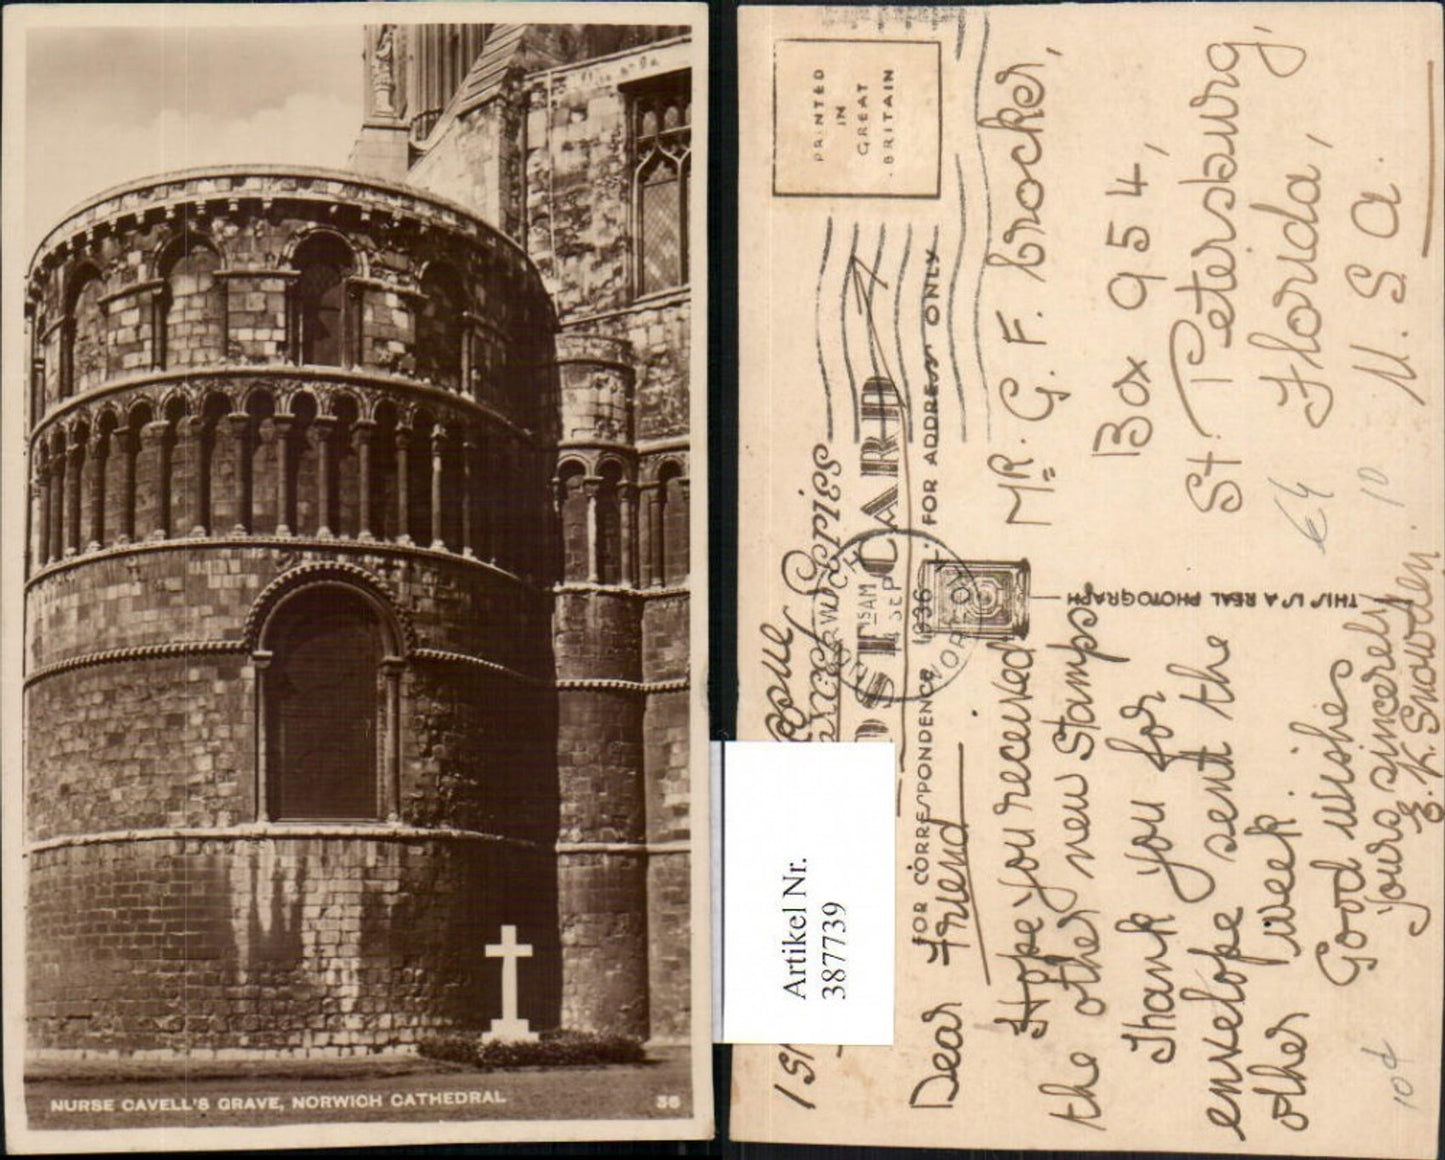 NURSE CAVELL'S GRAVE, NORWICH CATHEDRAL
36
PRINTED
IN
GREAT
BRITAIN
CARD
FOR CORRESPONDENCE
FOR ADDRESS ONLY
NORWICH
SAM
SEP
1936
THIS IS A REAL PHOTOGRAPH
Artikel Nr.
387739
Dear Friend
Hope you received
the other new Stamps
Thank you for
envelope sent the
other week.
Good wishes
yours sincerely
E. K. Snowden.
MR. G. F. Crocker,
Box 954,
St. Petersburg,
Florida,
U. S. A.
10d